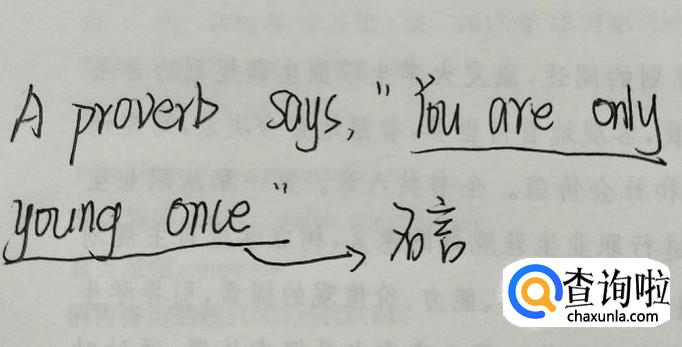 A proverb says, "You are only
young once" → 名言
查询啦
chaxunla.com